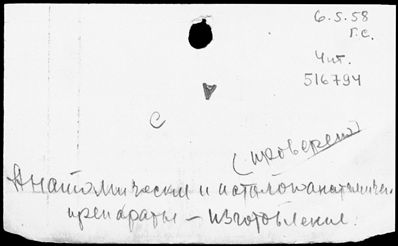 6.5.58
Г.С.
Чит.
516794
С
(проверено)
Анатомически и патологоанатомичес.
препараты – изготовление.